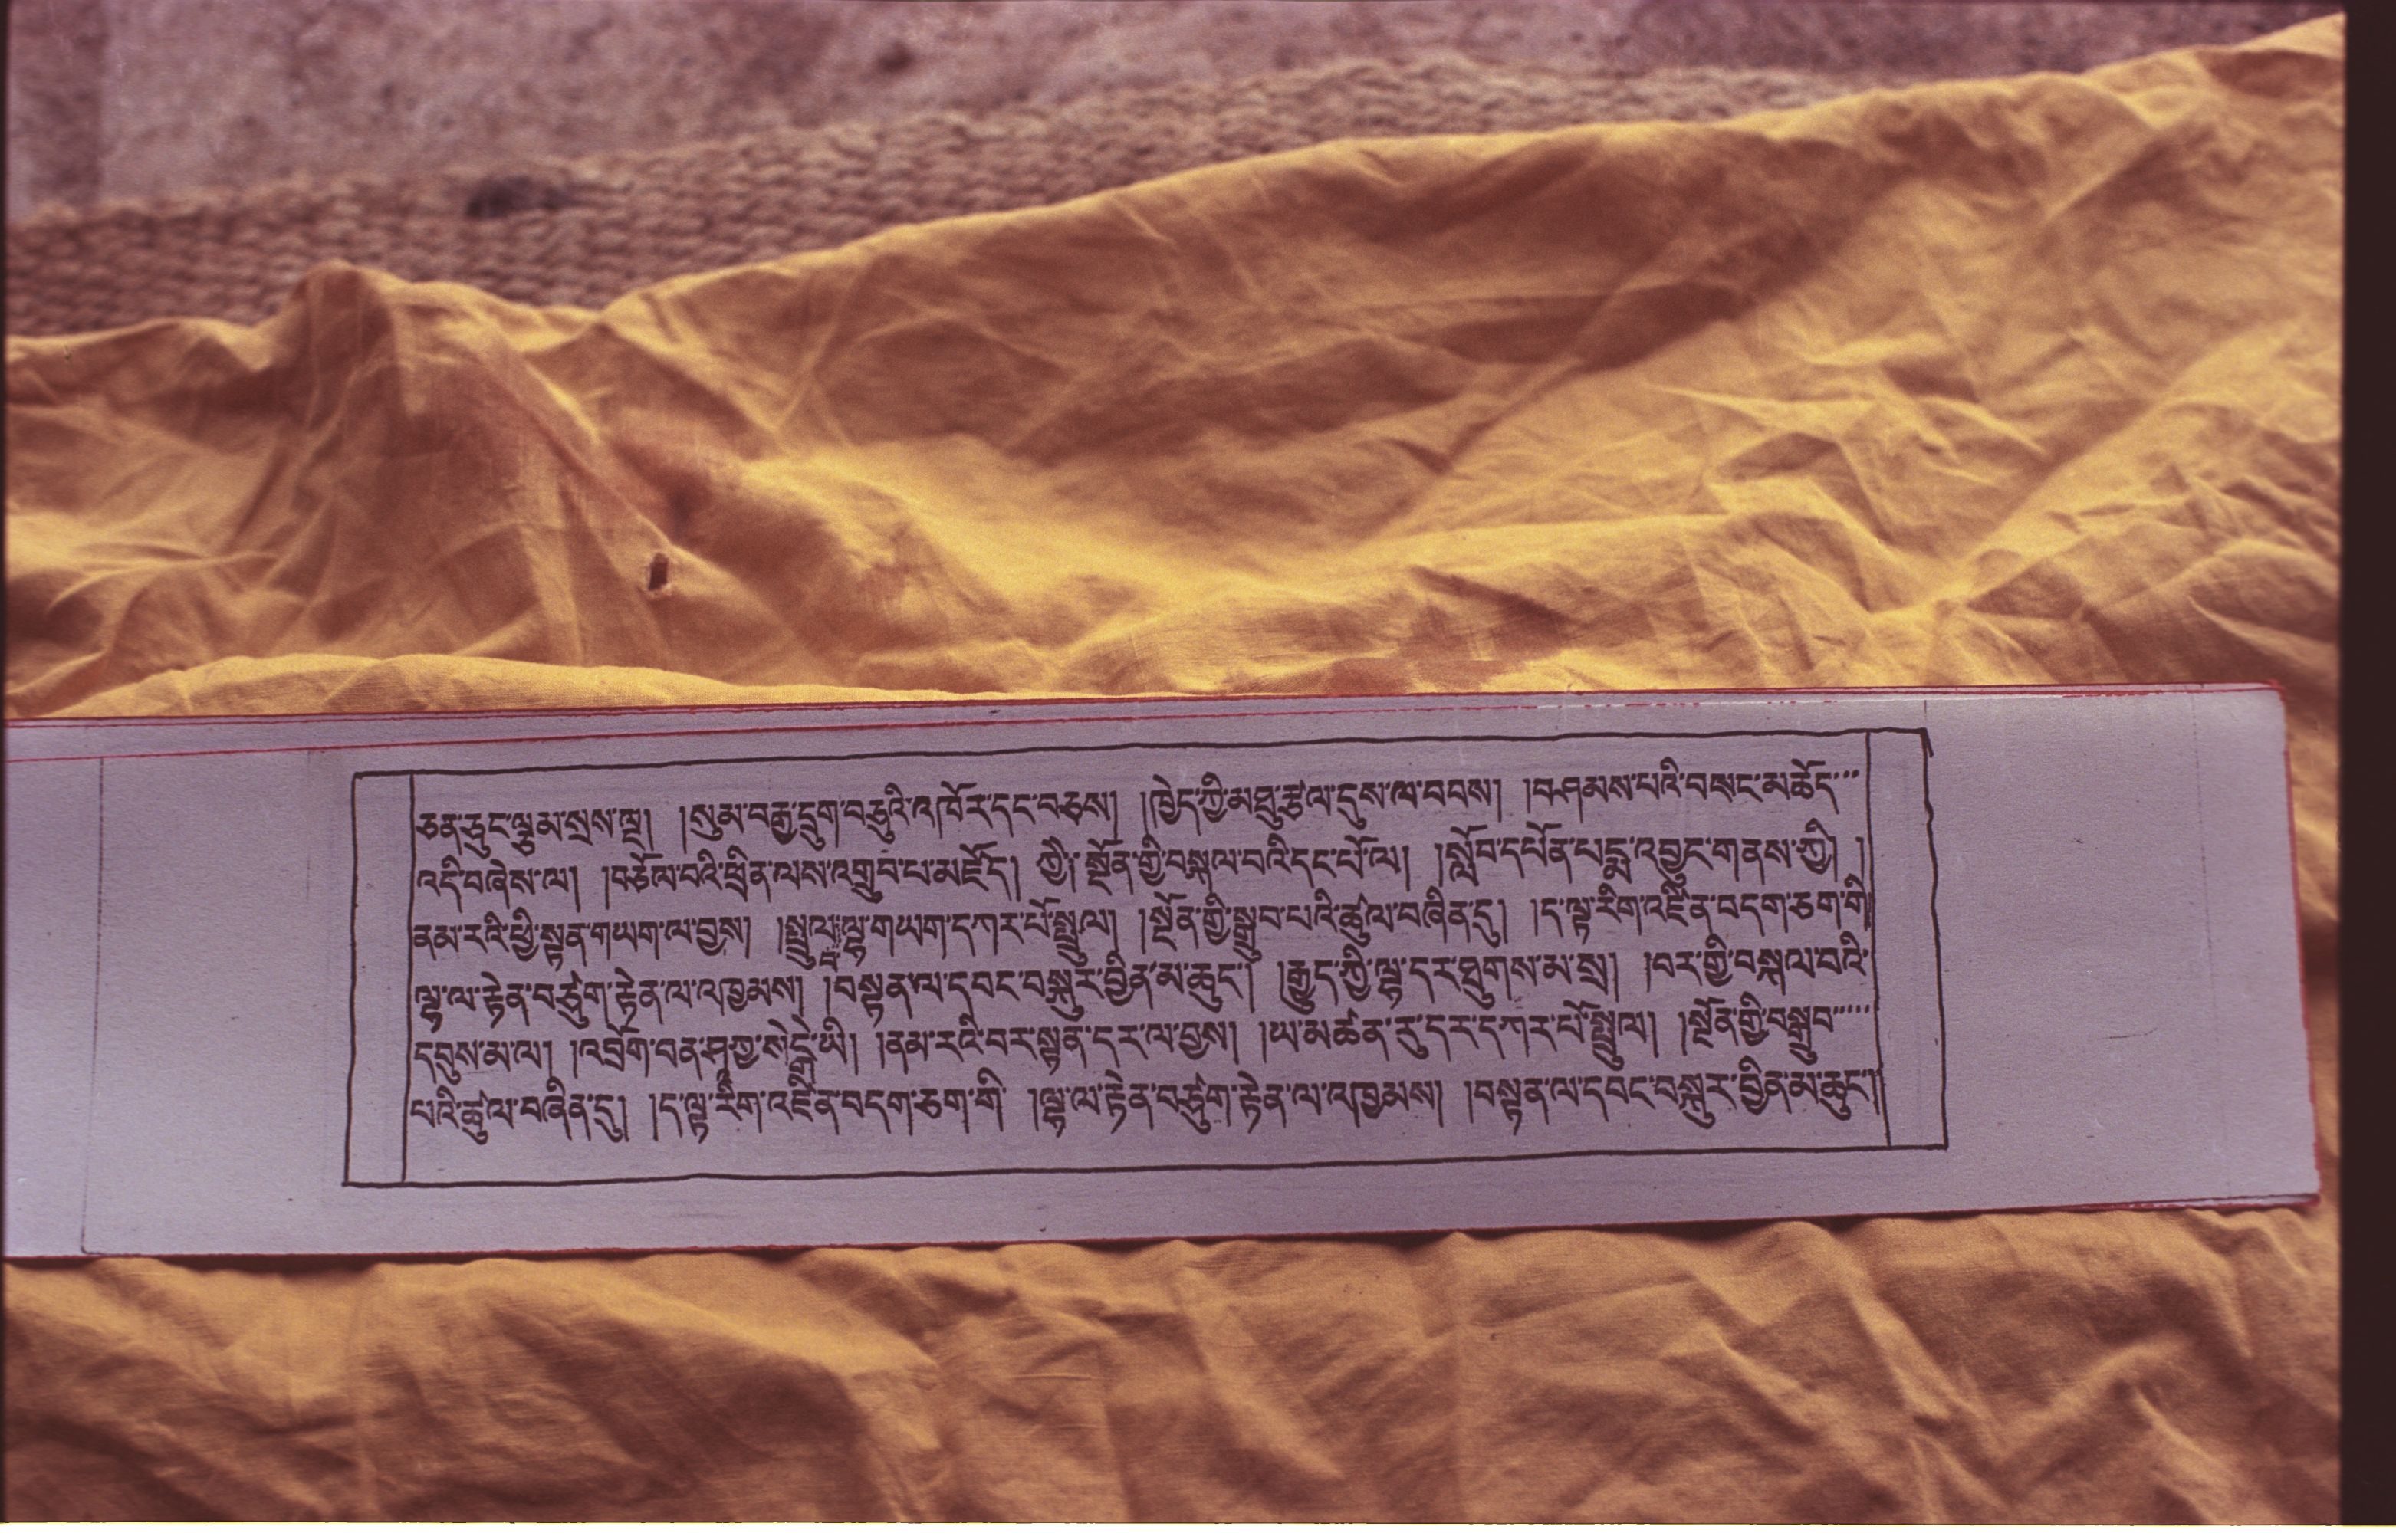 ཅན་ཅུང་ལྕམ་སྲས་ཁྲ། །སུམ་བརྒྱ་དྲུག་བཅུའི་འཁོར་དང་བཅས། །ཁྱེད་ཀྱི་མཐུ་རྩལ་དུས་ལ་བབས། །བཤམས་པའི་བསང་མཆོད་
འདི་བཞེས་ལ། །བཅོལ་བའི་ཕྲིན་ལས་འགྲུབ་པ་མཛོད། ཀྱེ། སྔོན་གྱི་བསྐལ་བའི་དང་པོ་ལ། །སློབ་དཔོན་པདྨ་འབྱུང་གནས་ཀྱི། །
ནམ་རའི་ཕྱི་སྟན་གཡག་ལ་བྱས། །སྤྲུལ་ལྷ་གཡག་དཀར་པོ་སྤྲུལ། །སྔོན་གྱི་སྒྲུབ་པའི་ཚུལ་བཞིན་དུ། །ད་ལྟ་རིག་འཛིན་བདག་ཅག་གི།
ལྷ་ལ་རྟེན་བཙུག་རྟེན་ལ་འཁྱམས། །བསྟན་ལ་དབང་བསྐུར་བྱིན་མ་ཆུང་། །རྒྱུད་ཀྱི་ལྷ་དར་ཐུགས་མ་སྲ། །བར་གྱི་བསྐལ་བའི་
དབུས་མ་ལ། །འབྲོག་བན་ཤཱཀྱ་སེངྒེ་ཡི། །ནམ་རའི་བར་སྟན་དར་ལ་བྱས། །ཡ་མཚན་རུ་དར་དཀར་པོ་སྤྲུལ། །སྔོན་གྱི་བསྒྲུབ་
པའི་ཚུལ་བཞིན་དུ། །ད་ལྟ་རིག་འཛིན་བདག་ཅག་གི །ལྷ་ལ་རྟེན་བཙུག་རྟེན་ལ་འཁྱམས། །བསྟན་ལ་དབང་བསྐུར་བྱིན་མ་ཆུང་།།